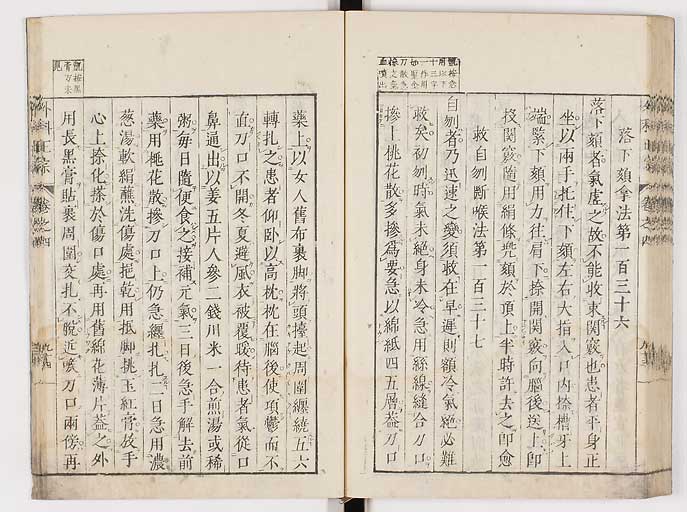 落下頦拿法第一百三十六
落下頦者氣虛之故不能收束関竅也患者平身正
坐以兩手托住下頦左右大指入口内捺槽牙上
端緊下頦用力往肩下捺開関竅向腦後送上即
投関竅隨用絹條兜頦於頂上半時許去之即愈
救自刎斷喉法第一百三十七
自刎者乃迅速之變須救在早遲則額冷氣絶必難
救矣初刎時氣未絶身未冷急用絲線縫合刀口
摻上桃花散多摻為要急以綿紙四五層葢刀口
藥上以女人舊布裹脚將頭擡起周圍纏繞五六
轉扎之患者仰卧以高枕枕在腦後使項鬱而不
直刀口不開冬夏避風衣被覆暖待患者氣從口
鼻通出以姜五片人參二錢川米一合煎湯或稀
粥毎日隨便食之接補元氣三日後急手解去前
藥用桃花散摻刀口上仍急纏扎扎二日急用濃
葱湯軟絹蘸洗傷處挹乾用抵脚挑玉紅膏放手
心上捺化搽於傷口處再用舊綿花薄片葢之外
用長黑膏貼裹周圍交扎不脱近喉刀口兩傍再
外科正宗 卷之四